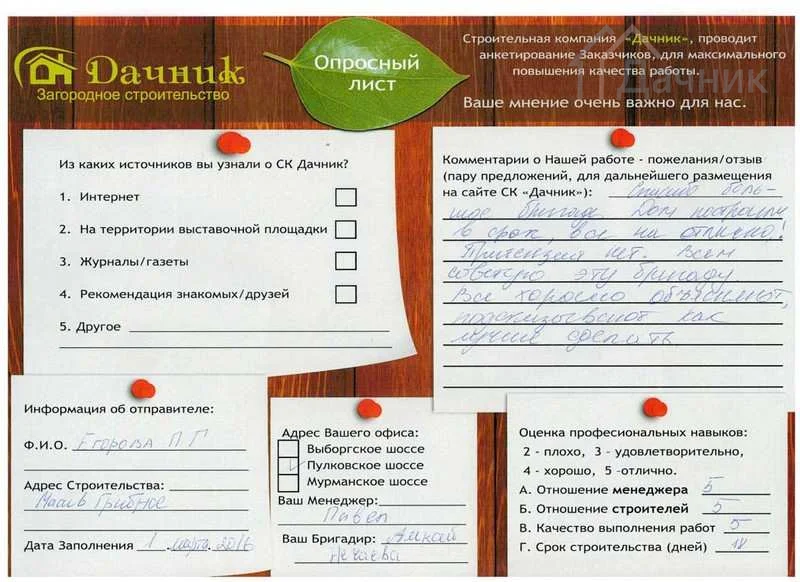 Дачник
Загородное строительство
Опросный
лист
Строительная компания «Дачник», проводит
анкетирование Заказчиков, для максимального
повышения качества работы.
Ваше мнение очень важно для нас.
Дачник
Из каких источников вы узнали о СК Дачник?
1. Интернет
2. На территории выставочной площадки
3. Журналы/газеты
4. Рекомендация знакомых/друзей
5. Другое
Комментарии о Нашей работе - пожелания/отзыв
(пару предложений, для дальнейшего размещения
на сайте СК «Дачник»): Спасибо боль-
шое бригаде. Дом построили
в срок, все на отлично!
Притензий нет. Всем
советую эту бригаду
Все хорошо объясняют,
подсказывают как
лучше сделать.
Информация об отправителе:
Ф.И.О. Егорова П Г
Адрес Строительства:
Масив Грибное
Дата Заполнения 1 марта 2016
Адрес Вашего офиса:
Выборгское шоссе
Пулковское шоссе
Мурманское шоссе
Ваш Менеджер:
Павел
Ваш Бригадир:
Нечаева
Оценка професиональных навыков:
2 - плохо, 3 - удовлетворительно,
4 - хорошо, 5 -отлично.
А. Отношение менеджера 5
Б. Отношение строителей 5
В. Качество выполнения работ 5
Г. Срок строительства (дней) 18